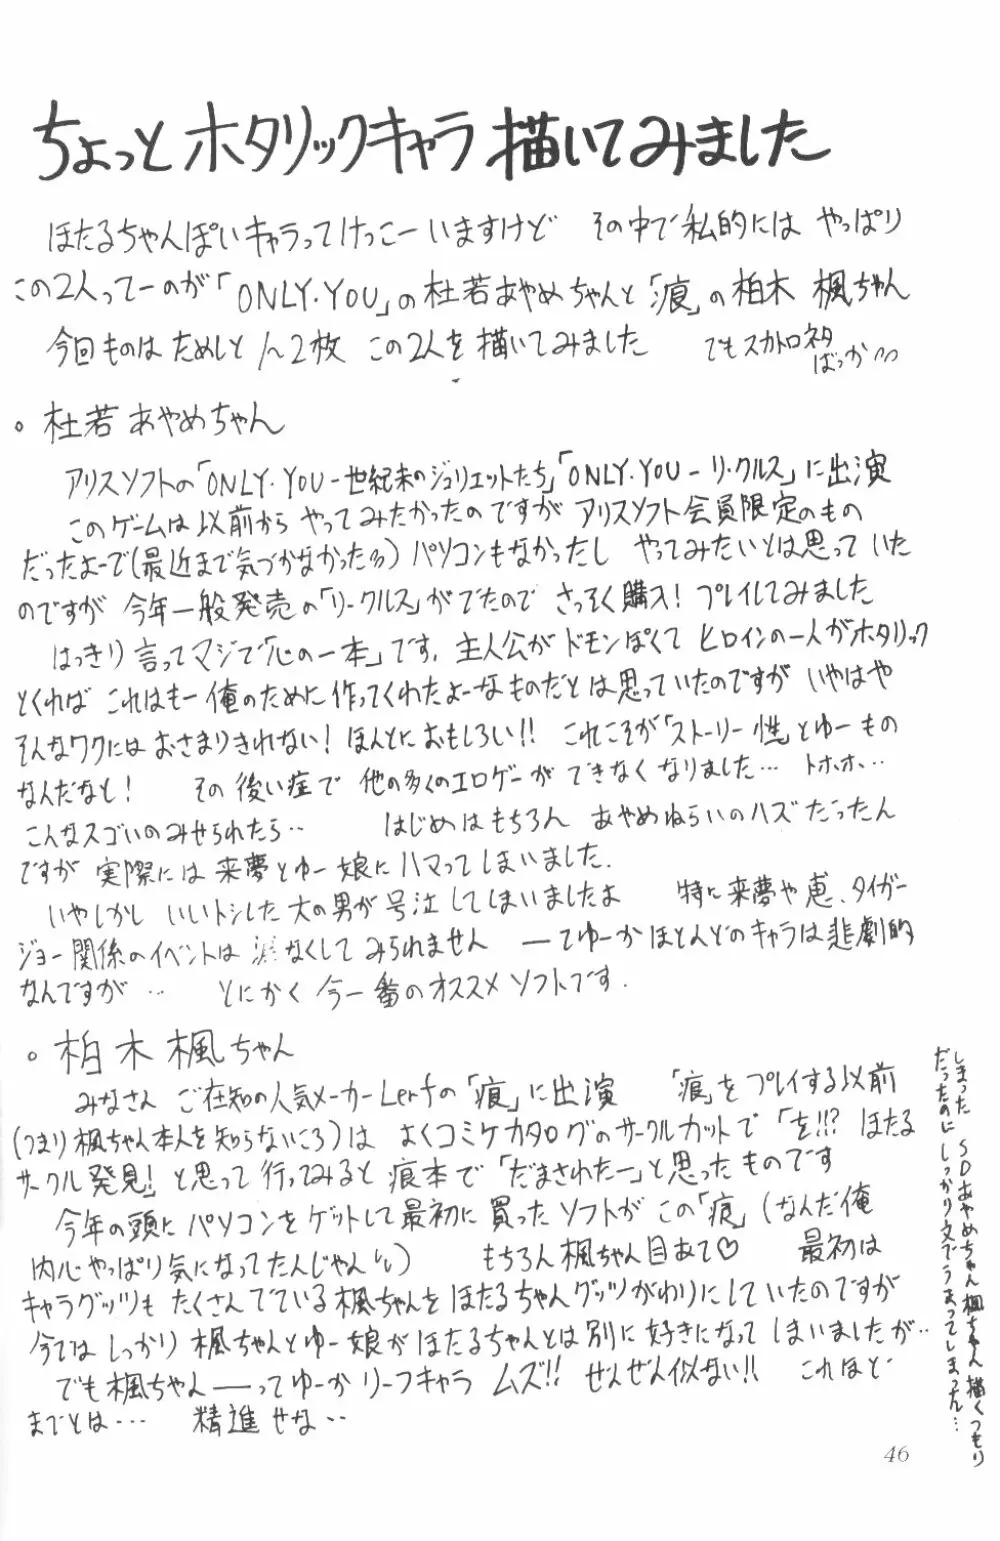 ちょっとホタリックキャラ描いてみました
ほたるちゃんぽいキャラってけっこーいますけど その中で私的には やっぱり
この2人ってーのが「ONLY・YOU」の杜若あやめちゃんと「痕」の柏木 楓ちゃん
今回ものは ためしと 1~2枚 この2人を描いてみました でもスカトロネタ
ばっか
。杜若あやめちゃん
アリスソフトの「ONLY・YOU-世紀末のジュリエットたち」「ONLY・YOU-リ・クルス」に出演
このゲームは以前から やってみたかったのですが アリスソフト会員限定のもの
だったよーで(最近まで気づかなかった) パソコンもなかったし やってみたいとは思っていた
のですが 今年一般発売の「リ・クルス」がでたので さっそく購入! プレイしてみました
はっきり言ってマジで「心の一本」です. 主人公が ドモンぽくて ヒロインの一人がホタリック
とくれば これはもー俺のために作ってくれたよーなものだとは思っていたのですが いやはや
そんなワクにはおさまりきれない! ほんとにおもしろい!! これこそが「ストーリー性」とゆーもの
なんだなと! その後い症で 他の多くのエロゲーが できなくなりました… トホホ…
こんなスゴいのみせられたら‥ はじめはもちろん あやめねらいのハズだったん
ですが 実際には来夢とゆー娘にハマってしまいました.
いやしかし いいトシした大の男が号泣してしまいましたよ 特に来夢や恵、タイガー
ジョー関係のイベントは なくしてみられません ーてゆーかほとんどのキャラは悲劇的
なんですが … とにかく 今一番のオススメソフトです.
。柏木楓ちゃん
みなさん ご在知の人気メーカーLerfの「痕」に出演 「痕」をプレイする以前
(つまり楓ちゃん本人を知らないころ)は よくコミケカタログのサークルカットで「を!!? ほたる
サークル発見!」と思って行ってみると痕本で「だまされたー」と思ったものです
今年の頭にパソコンをゲットして最初に買ったソフトがこの「痕」(なんだ俺
内心やっぱり気になってたんじゃん) もちろん楓ちゃん目あて♡ 最初は
キャラグッツも たくさんでている楓ちゃんをほたるちゃんグッツがわりにしていたのですが
今ではしっかり楓ちゃんとゆー娘がほたるちゃんとは別に好きになってしまいましたが‥
でも楓ちゃん―ってゆーか リーフキャラ ムズ!! ぜんぜん似ない!! これほど
までとは… 精進せな‥
しまった SDあやめちゃん楓ちゃん描くつもり
だったのに しっかり文でうまってしまった…
46